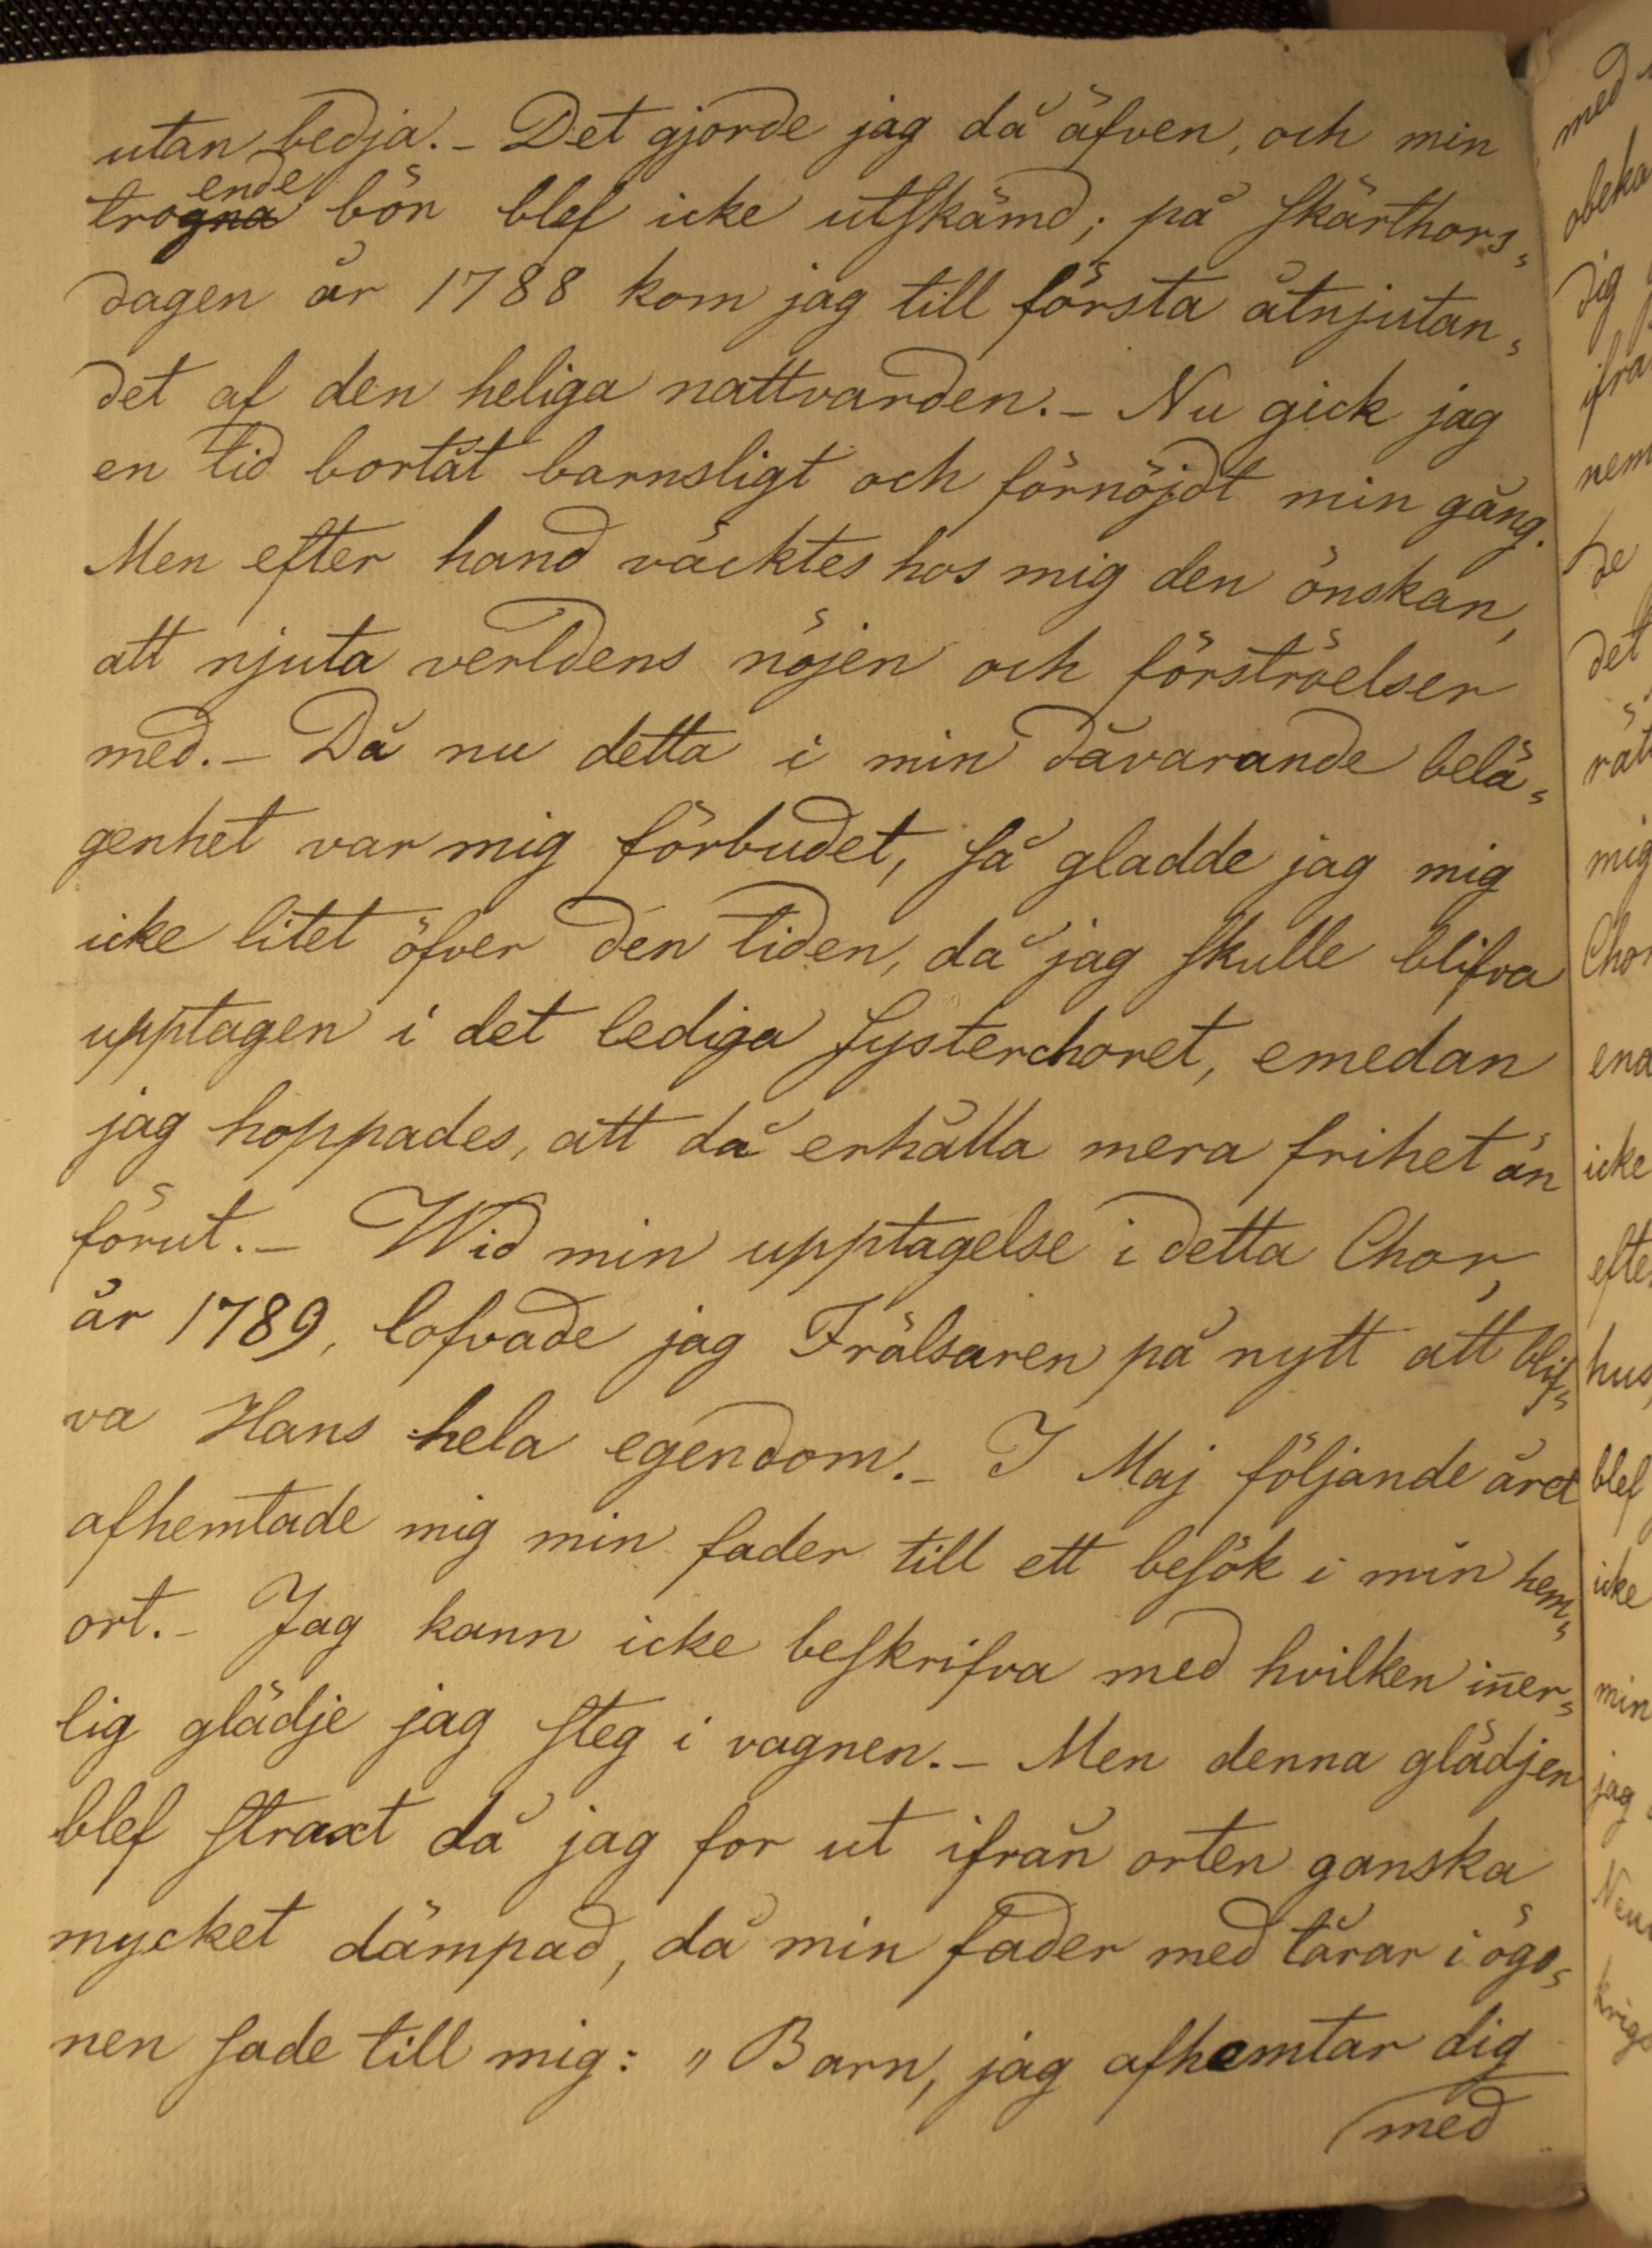 utan bedja. – Det gjorde jag då äfven, och min
ende
trogna bön blef icke utskämd; på skärthors=
dagen år 1788 kom jag till första åtnjutan=
det af den heliga nattvarden. – Nu gick jag
en tid bortåt barnsligt och förnöjdt min gång.
Men efter hand väcktes hos mig den önskan,
att njuta verldens nöjen och förströelser
med. – Då nu detta i min dåvarande belä=
genhet var mig förbudet, så gladde jag mig
icke litet öfver den tiden, då jag skulle blifva
upptagen i det lediga systerchoret, emedan
jag hoppades, att då erhålla mera frihet än
förut. – Wid min upptagelse i detta Chor,
år 1789, lofvade jag Frälsaren på nytt att blif=
va Hans hela egendom. – I Maj följande året
afhemtade mig min fader till ett besök i min hem=
ort. – Jag kann icke beskrifva med hvilken iñer=
lig glädje jag steg i vagnen. – Men denna glädjen
blef straxt då jag for ut ifrån orten ganska
mycket dämpad, då min fader med tårar i ögo=
nen sade till mig: „Barn, jag afhemtar dig
med
med
obeka
dig
ifrå
nem
de
det
rätt
mig
Chor
ena
icke
efter
hus,
blef
icke
min
jag
krigs